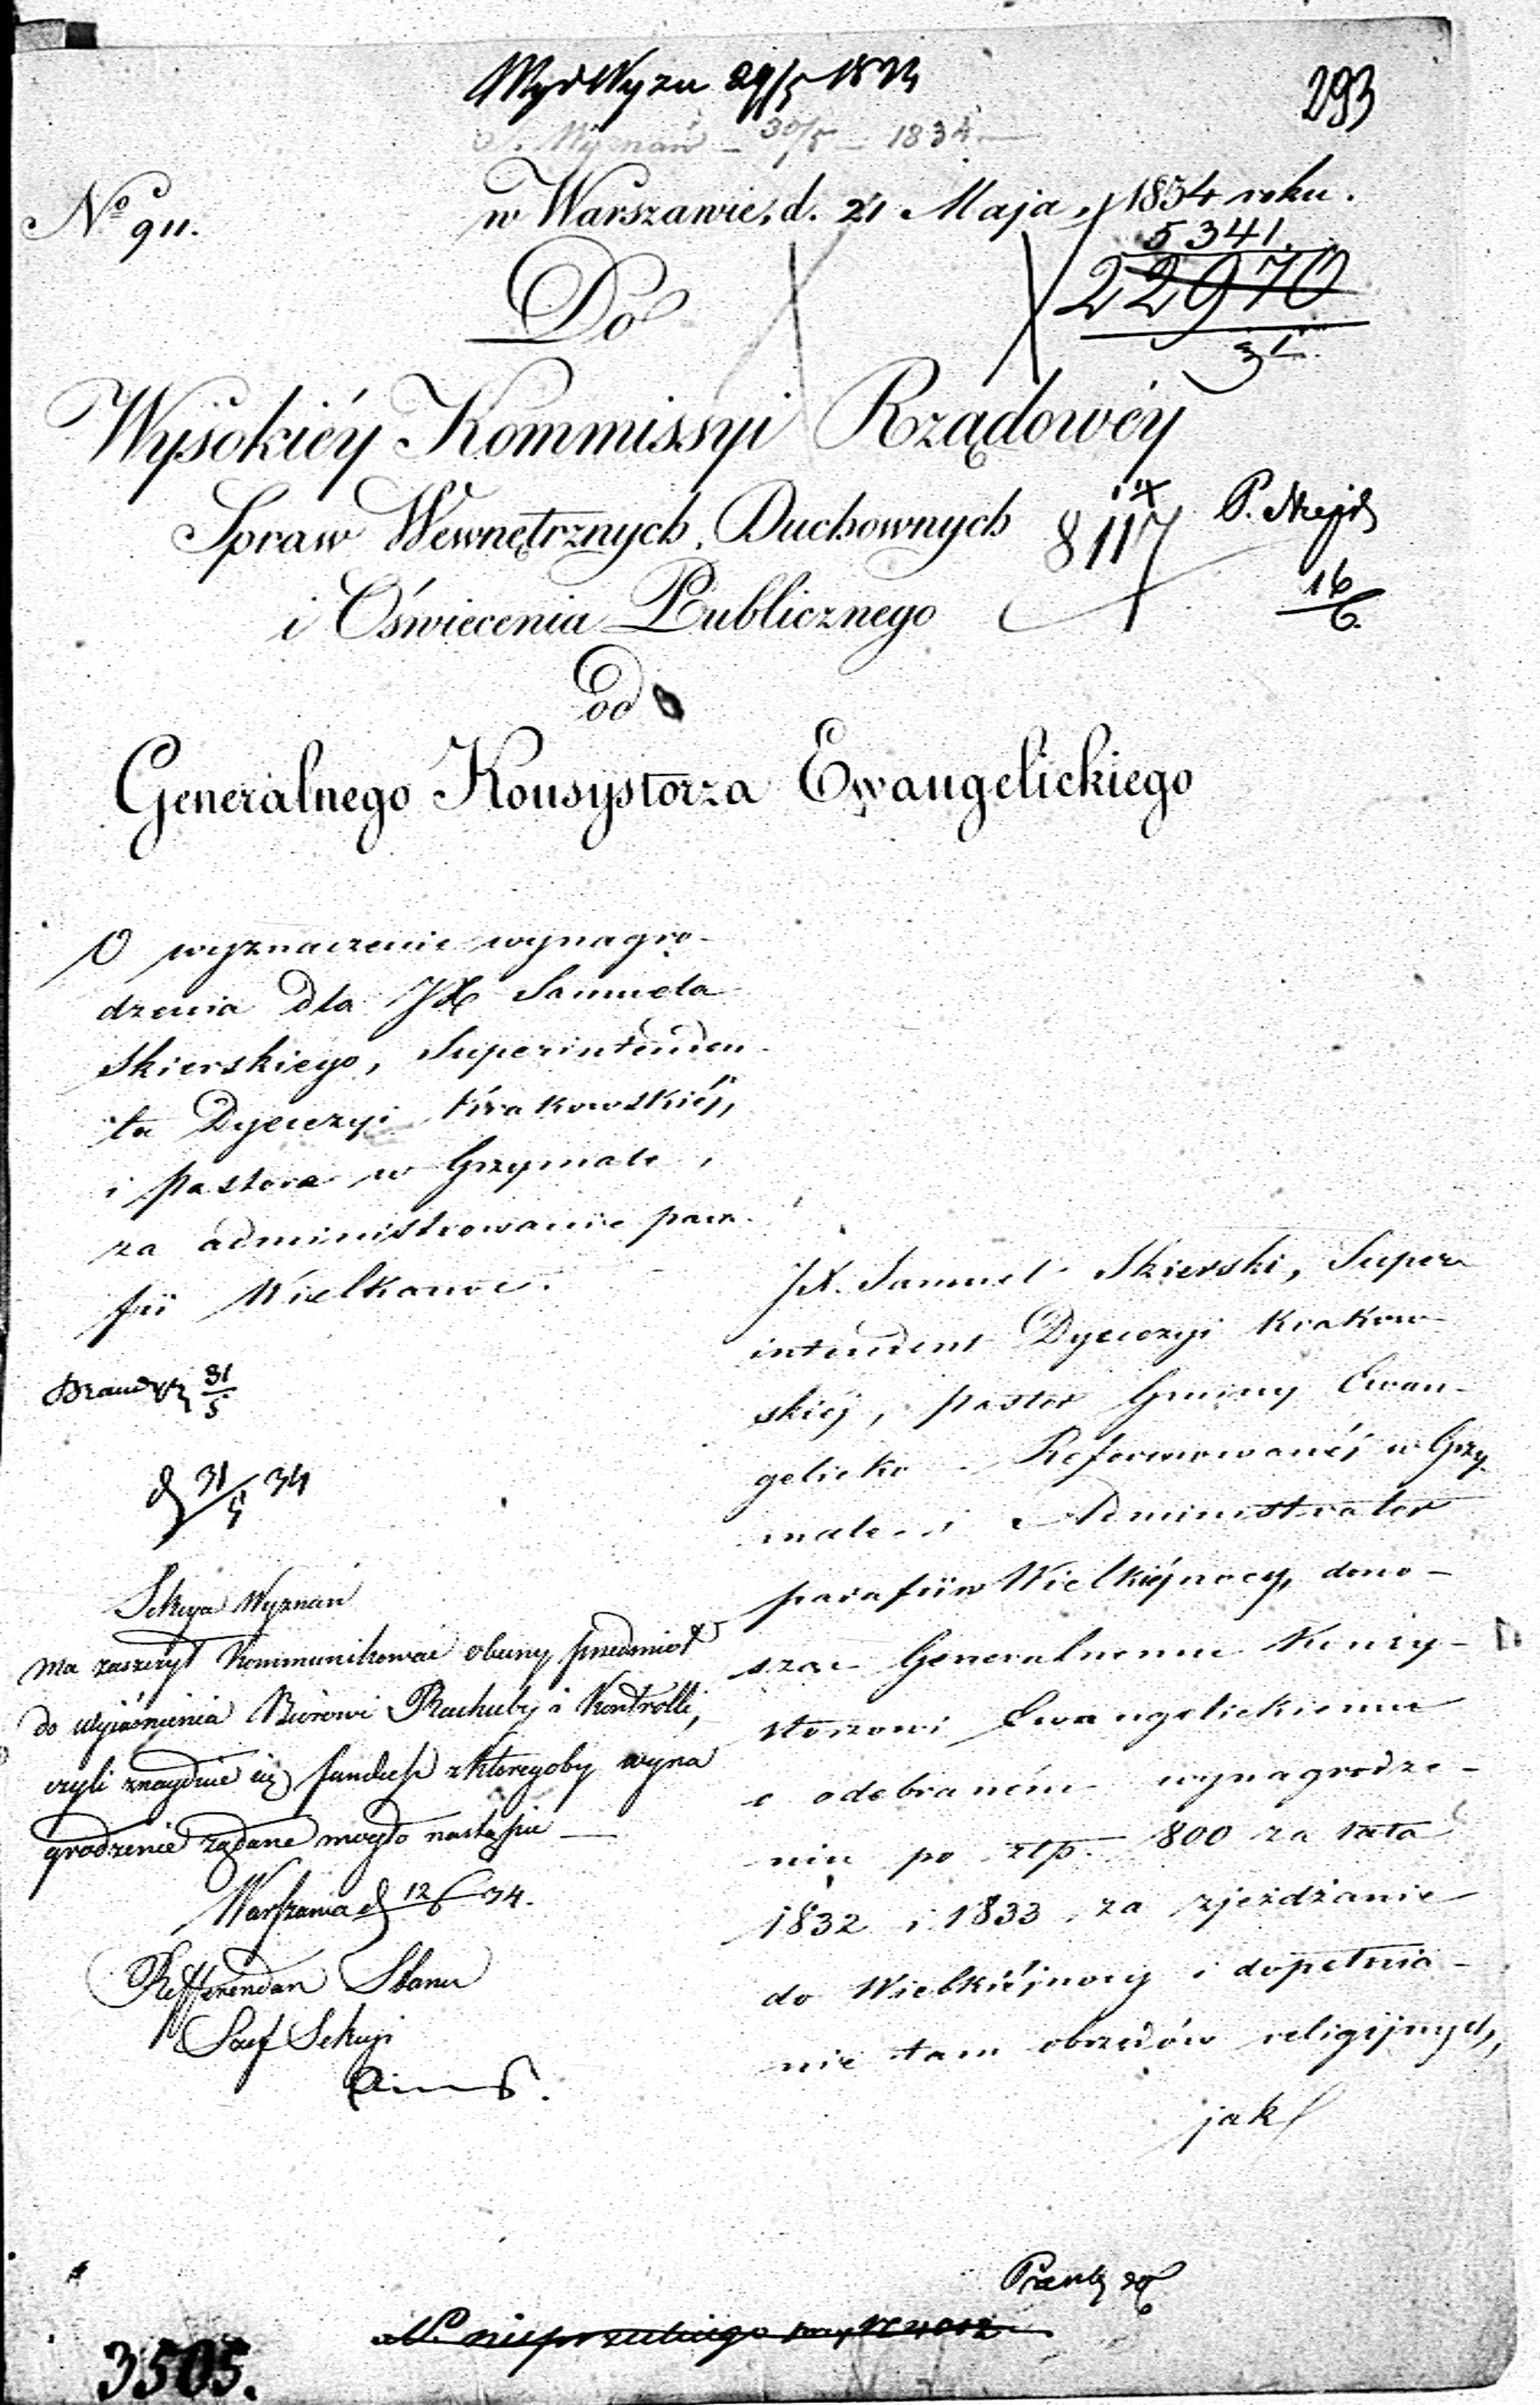 29/5 1834
293
Wyznań – 30/5 – 1834 –
No 911.
w Warszawie, d. 21 Maja 1834 roku.
5341.
22970
Do
Wysokiéy Kommissyi Rządowéy
Spraw Wewnętrznych, Duchownych
8117 P.
i Oświecenia Publicznego
16/6.
od
Generalnego Konsystorza Ewangelickiego
O wyznaczenie wynagro-
dzenia dla JX Samuela
Skierskiego, Superintenden-
ta Dyecezyi Krakowskiéj,
i pastora w Grzymale,
za administrowanie para-
fii Wielkanoc.
31/5
d 31/5 34
Sekcya Wyznań
ma zaszczyt kommunikować obecny przedmiot
do wyjaśnienia Biorowi Rachuby i Kontrolli,
czyli znaydzie się fundusz z któregoby wyna
grodzenie żądane mogło nastąpić —
Warszawa d 12/6 34.
Refferendarz Stanu
Szef Sekcyi
JX. Samuel Skierski, Super-
intendent Dyecezyi Krakow-
skiéj, pastor Gminy Ewan-
gelicko - Reformowanéj w Grzy-
male i Administrator
parafii w Wielkiéjnocy, dono-
sząc Generalnemu Konsy-
storzowi Ewangelickiemu
o odebraném wynagrodze-
niu po złp. 800 za lata
1832 i 1833 za zjeżdżanie
do Wielkiéjnocy i dopełnia-
nie tam obrzędów religijnych,
jak
3505.